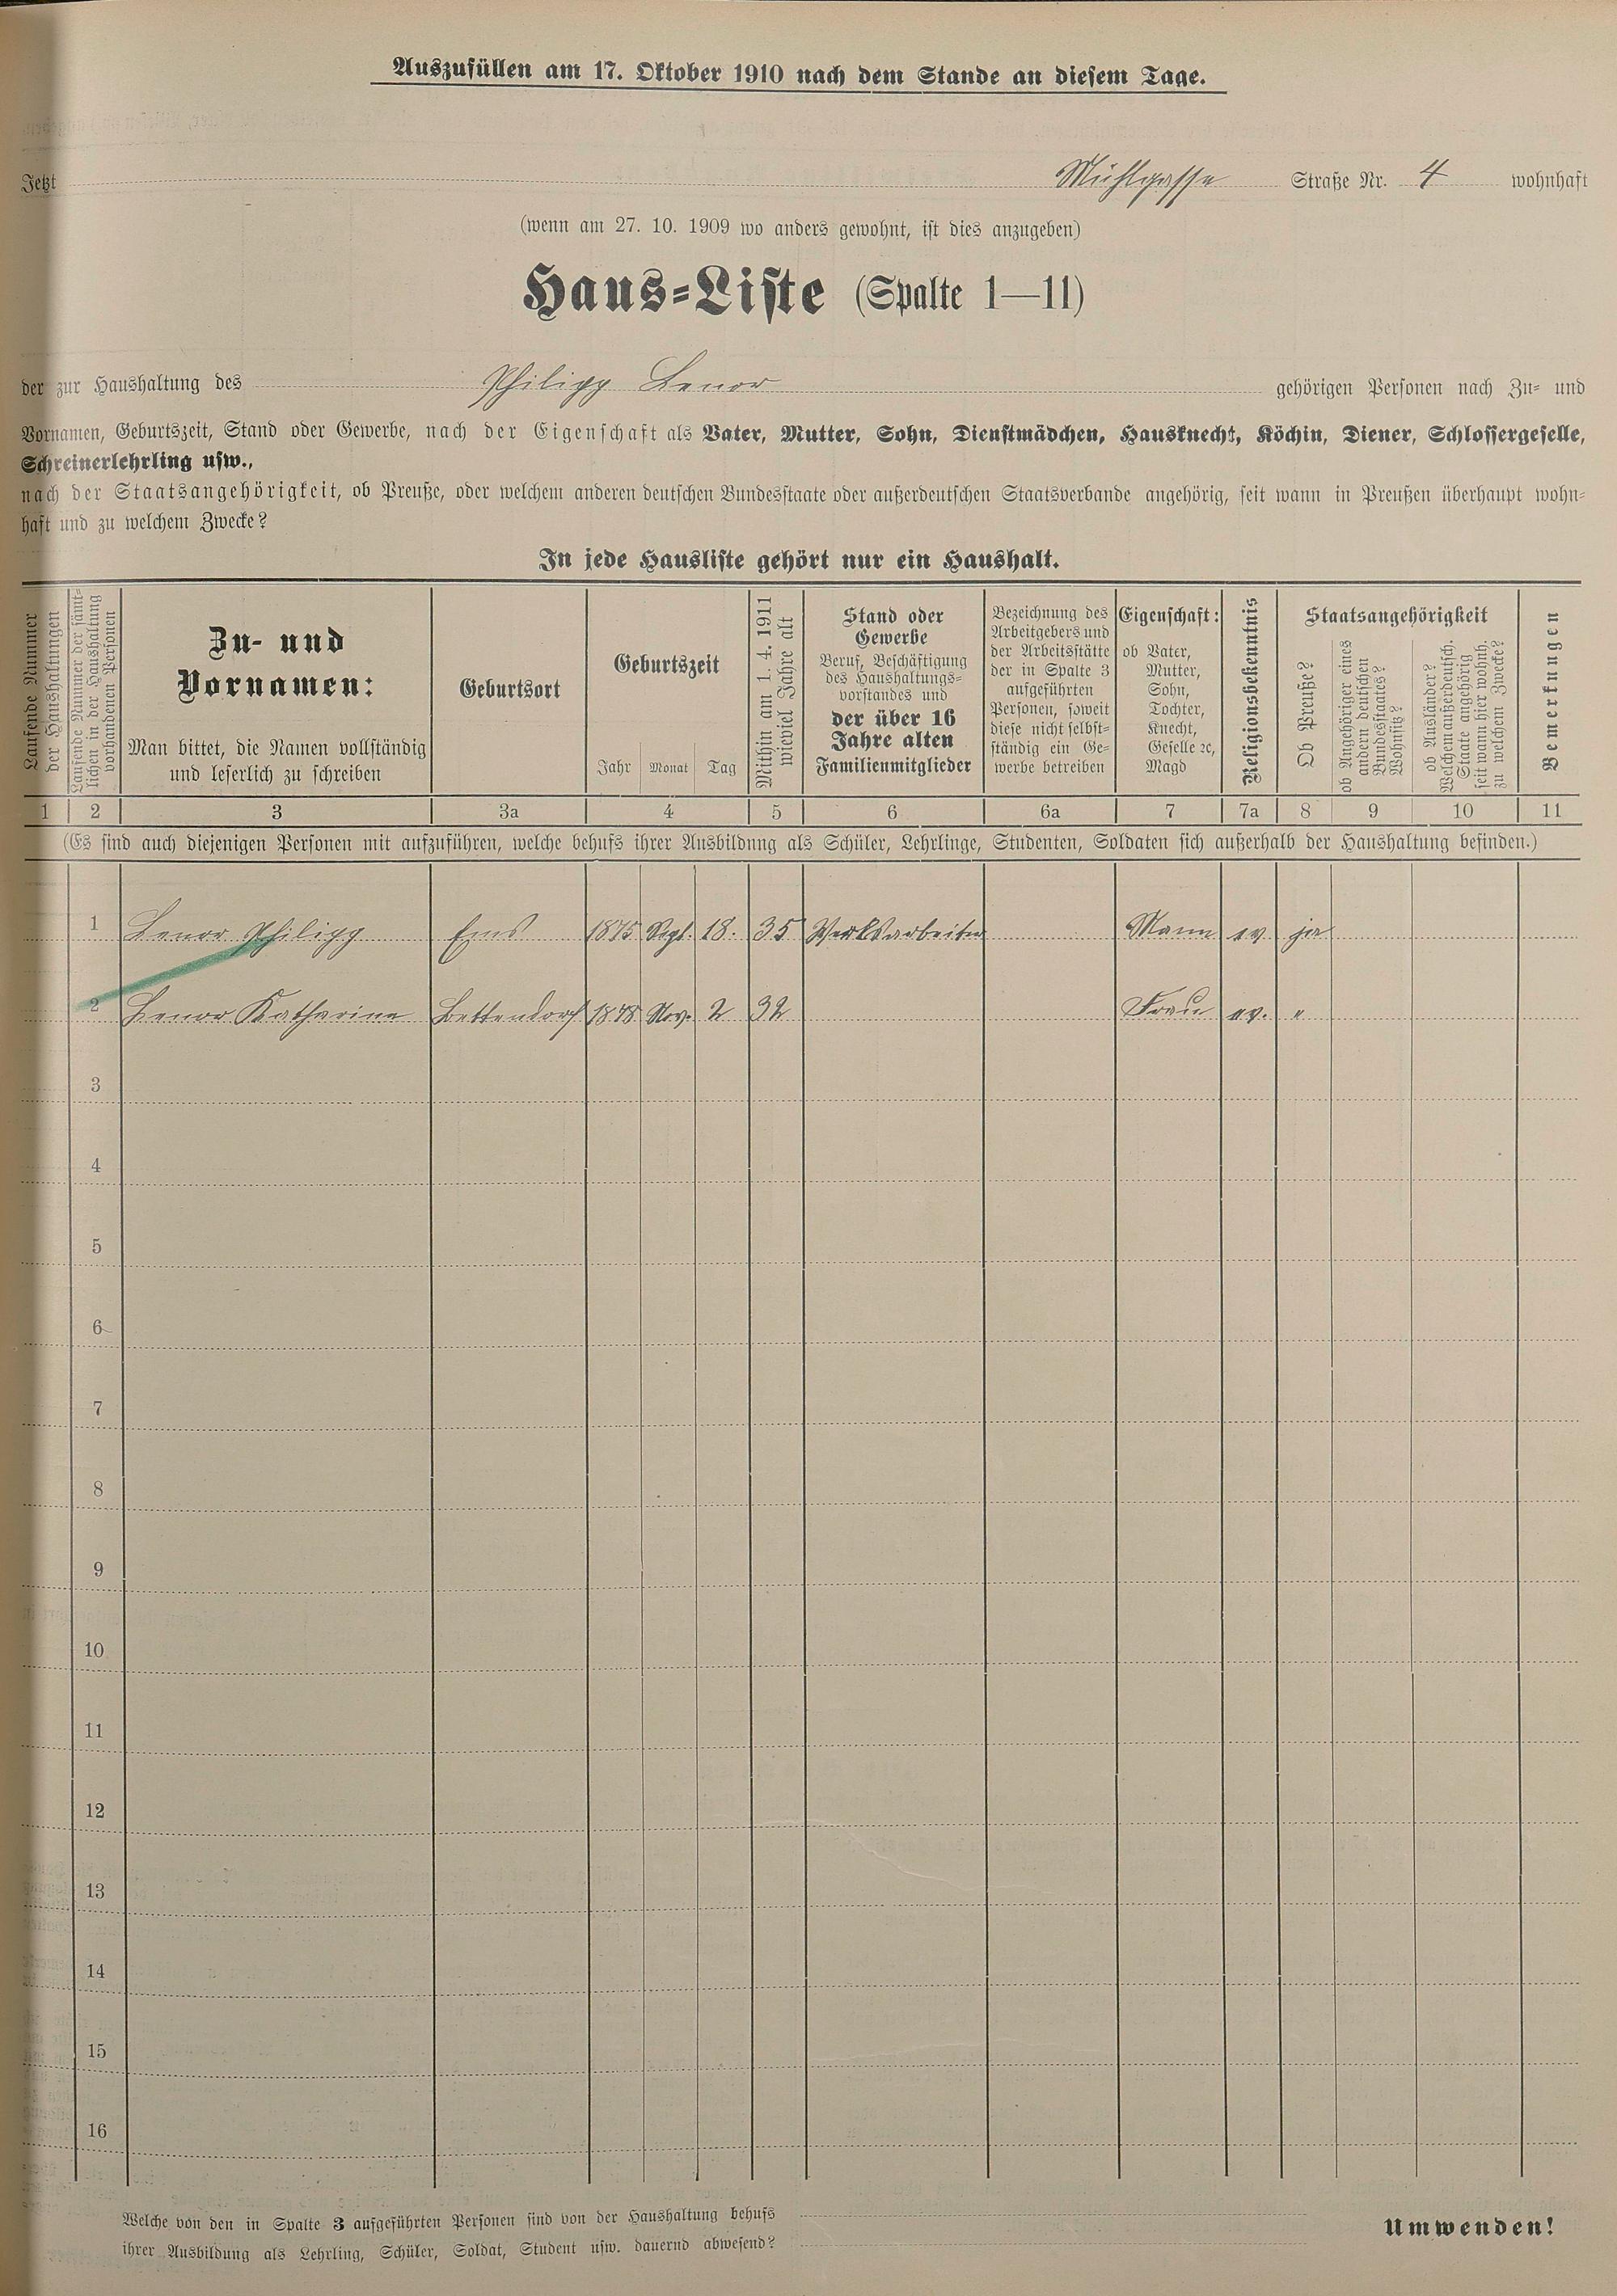 Auszufüllen am 17. Oktober 1910 nach dem Stande an diesem Tage.
Jetzt Mühlgasse Straße Nr. 4 wohnhaft
(wenn am 27. 10. 1909 wo anders gewohnt, ist dies anzugeben)
Haus-Liste (Spalte 1—11)
der zur Haushaltung des Philipp Lenor gehörigen Personen nach Zu- und
Vornamen, Geburtszeit, Stand oder Gewerbe, nach der Eigenschaft als Vater, Mutter, Sohn, Dienstmädchen, Hausknecht, Köchin, Diener, Schlossergeselle,
Schreinerlehrling usw.,
nach der Staatsangehörigkeit, ob Preuße, oder welchem anderen deutschen Bundesstaate oder außerdeutschen Staatsverbande angehörig, seit wann in Preußen überhaupt wohn-
haft und zu welchem Zwecke?
In jede Hausliste gehört nur ein Haushalt.
Laufende Nummer
der Haushaltungen
Laufende Nummer der sämt-
lichen in der Haushaltung
vorhandenen Personen
Zu- und
Vornamen:
Man bittet, die Namen vollständig
und leserlich zu schreiben
Geburtsort
Geburtszeit
Jahr Monat Tag
Mithin am 1. 4. 1911
wieviel Jahre alt
Stand oder
Gewerbe
Beruf, Beschäftigung
des Haushaltungs-
vorstandes und
der über 16
Jahre alten
Familienmitglieder
Bezeichnung des
Arbeitgebers und
der Arbeitsstätte
der in Spalte 3
aufgeführten
Personen, soweit
diese nicht selbst-
ständig ein Ge-
werbe betreiben
Eigenschaft:
ob Vater,
Mutter,
Sohn,
Tochter,
Knecht,
Geselle ꝛc,
Magd
Religionsbekenntnis
Staatsangehörigkeit
Ob Preuße?
ob Angehöriger eines
andern deutschen
Bundesstaates?
Wohnsitz?
ob Ausländer?
Welchem außerdeutsch.
Staate angehörig
seit wann hier wohnh.
zu welchem Zwecke?
Bemerkungen
1 2 3 3a 4 5 6 6a 7 7a 8 9 10 11
(Es sind auch diejenigen Personen mit aufzuführen, welche behufs ihrer Ausbildung als Schüler, Lehrlinge, Studenten, Soldaten sich außerhalb der Haushaltung befinden.)
1 Lenor Philipp Ems 1875 Sept. 18. 35 Werksarbeiter Mann ev ja
2 Lenor Katharina Bettendorf 1878 Nov. 2 32 Frau ev. "
3
4
5
6
7
8
9
10
11
12
13
14
15
16
Welche von den in Spalte 3 aufgeführten Personen sind von der Haushaltung behufs
ihrer Ausbildung als Lehrling, Schüler, Soldat, Student usw. dauernd abwesend?
Umwenden!